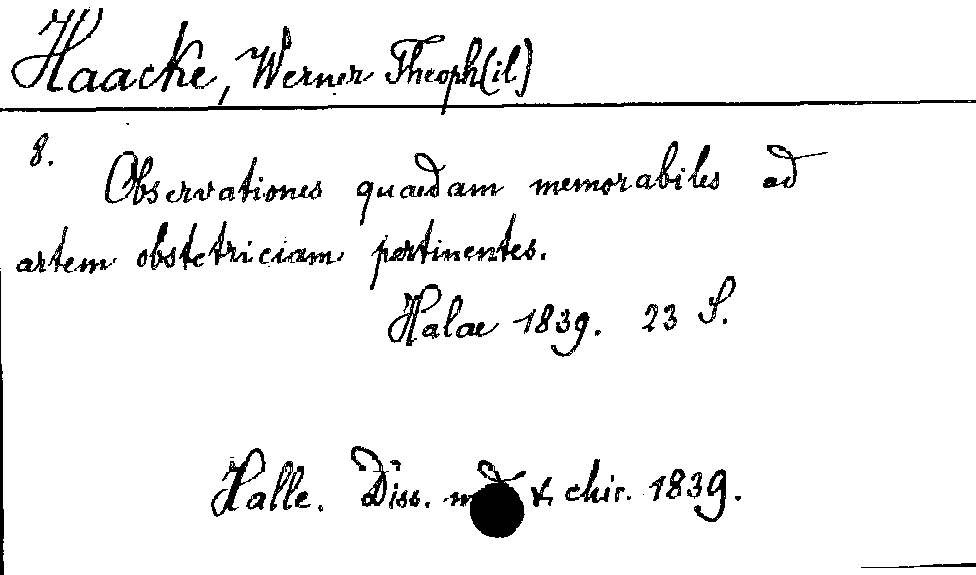 Haacke, Werner Theoph(il)
8.
Observationes quaedam memorabiles ad
artem obstetriciam pertinentes.
Halae 1839. 23 S.
Halle. Diss. & chir. 1839.